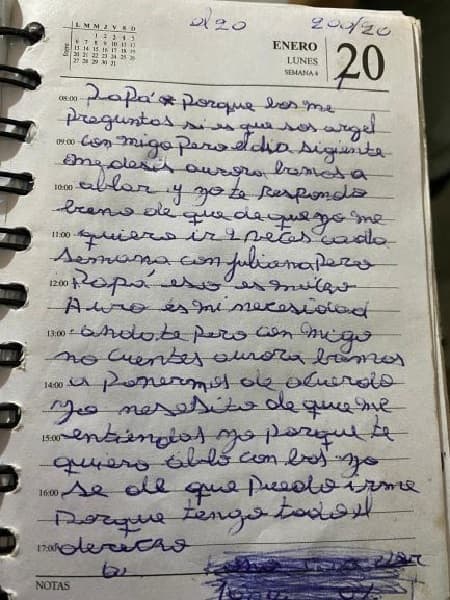 L M M J V S D
Enero
1 2 3 4 5
6 7 8 9 10 11 12
13 14 15 16 17 18 19
20 21 22 23 24 25 26
27 28 29 30 31
d20
200/20
ENERO
LUNES
SEMANA 4
20
08:00 Papá porque bos me
preguntas si es que sos argel
09:00 con migo pero el dia sigiente
me desis aurora bamos a
10:00 ablar y yo te respondo
bueno de que de que yo me
11:00 quiero ir 2 veces cada
semana con juliana pero
12:00 Papá eso es mucho
Auro es mi necesidad
13:00 andote pero con migo
no cuentes aurora bamos
14:00 a ponermos de acuerdo
yo nesesito de que me
15:00 entiendas yo porque te
quiero ablo con bos yo
16:00 se de que puedo irme
porque tengo todo el
17:00 derecho
NOTAS